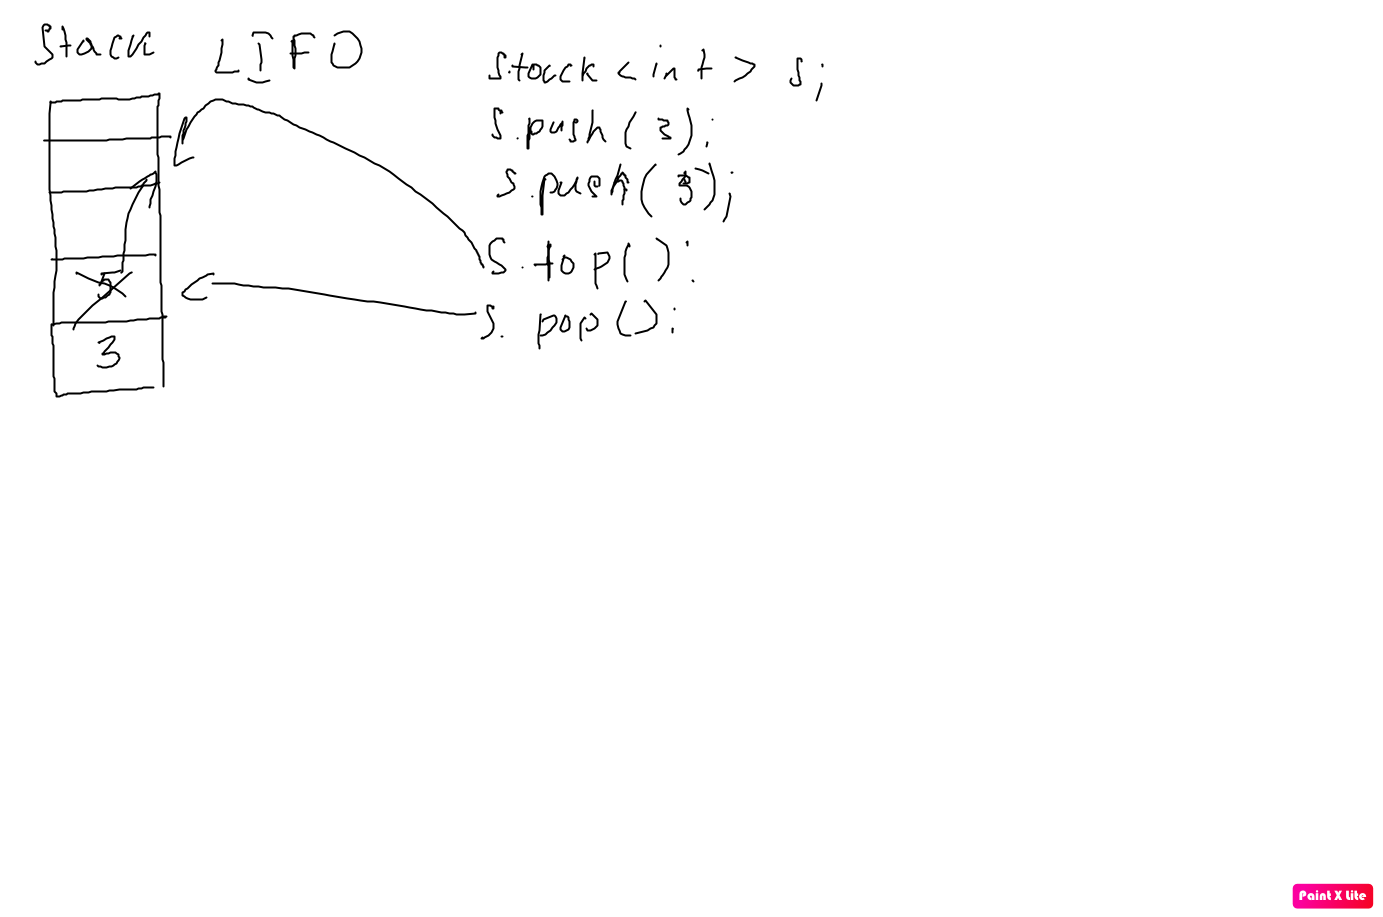 Stack LIFO
stack <int> s;
s.push(3);
s.push(5);
s.top():
s.pop();
5
3
Paint X Lite